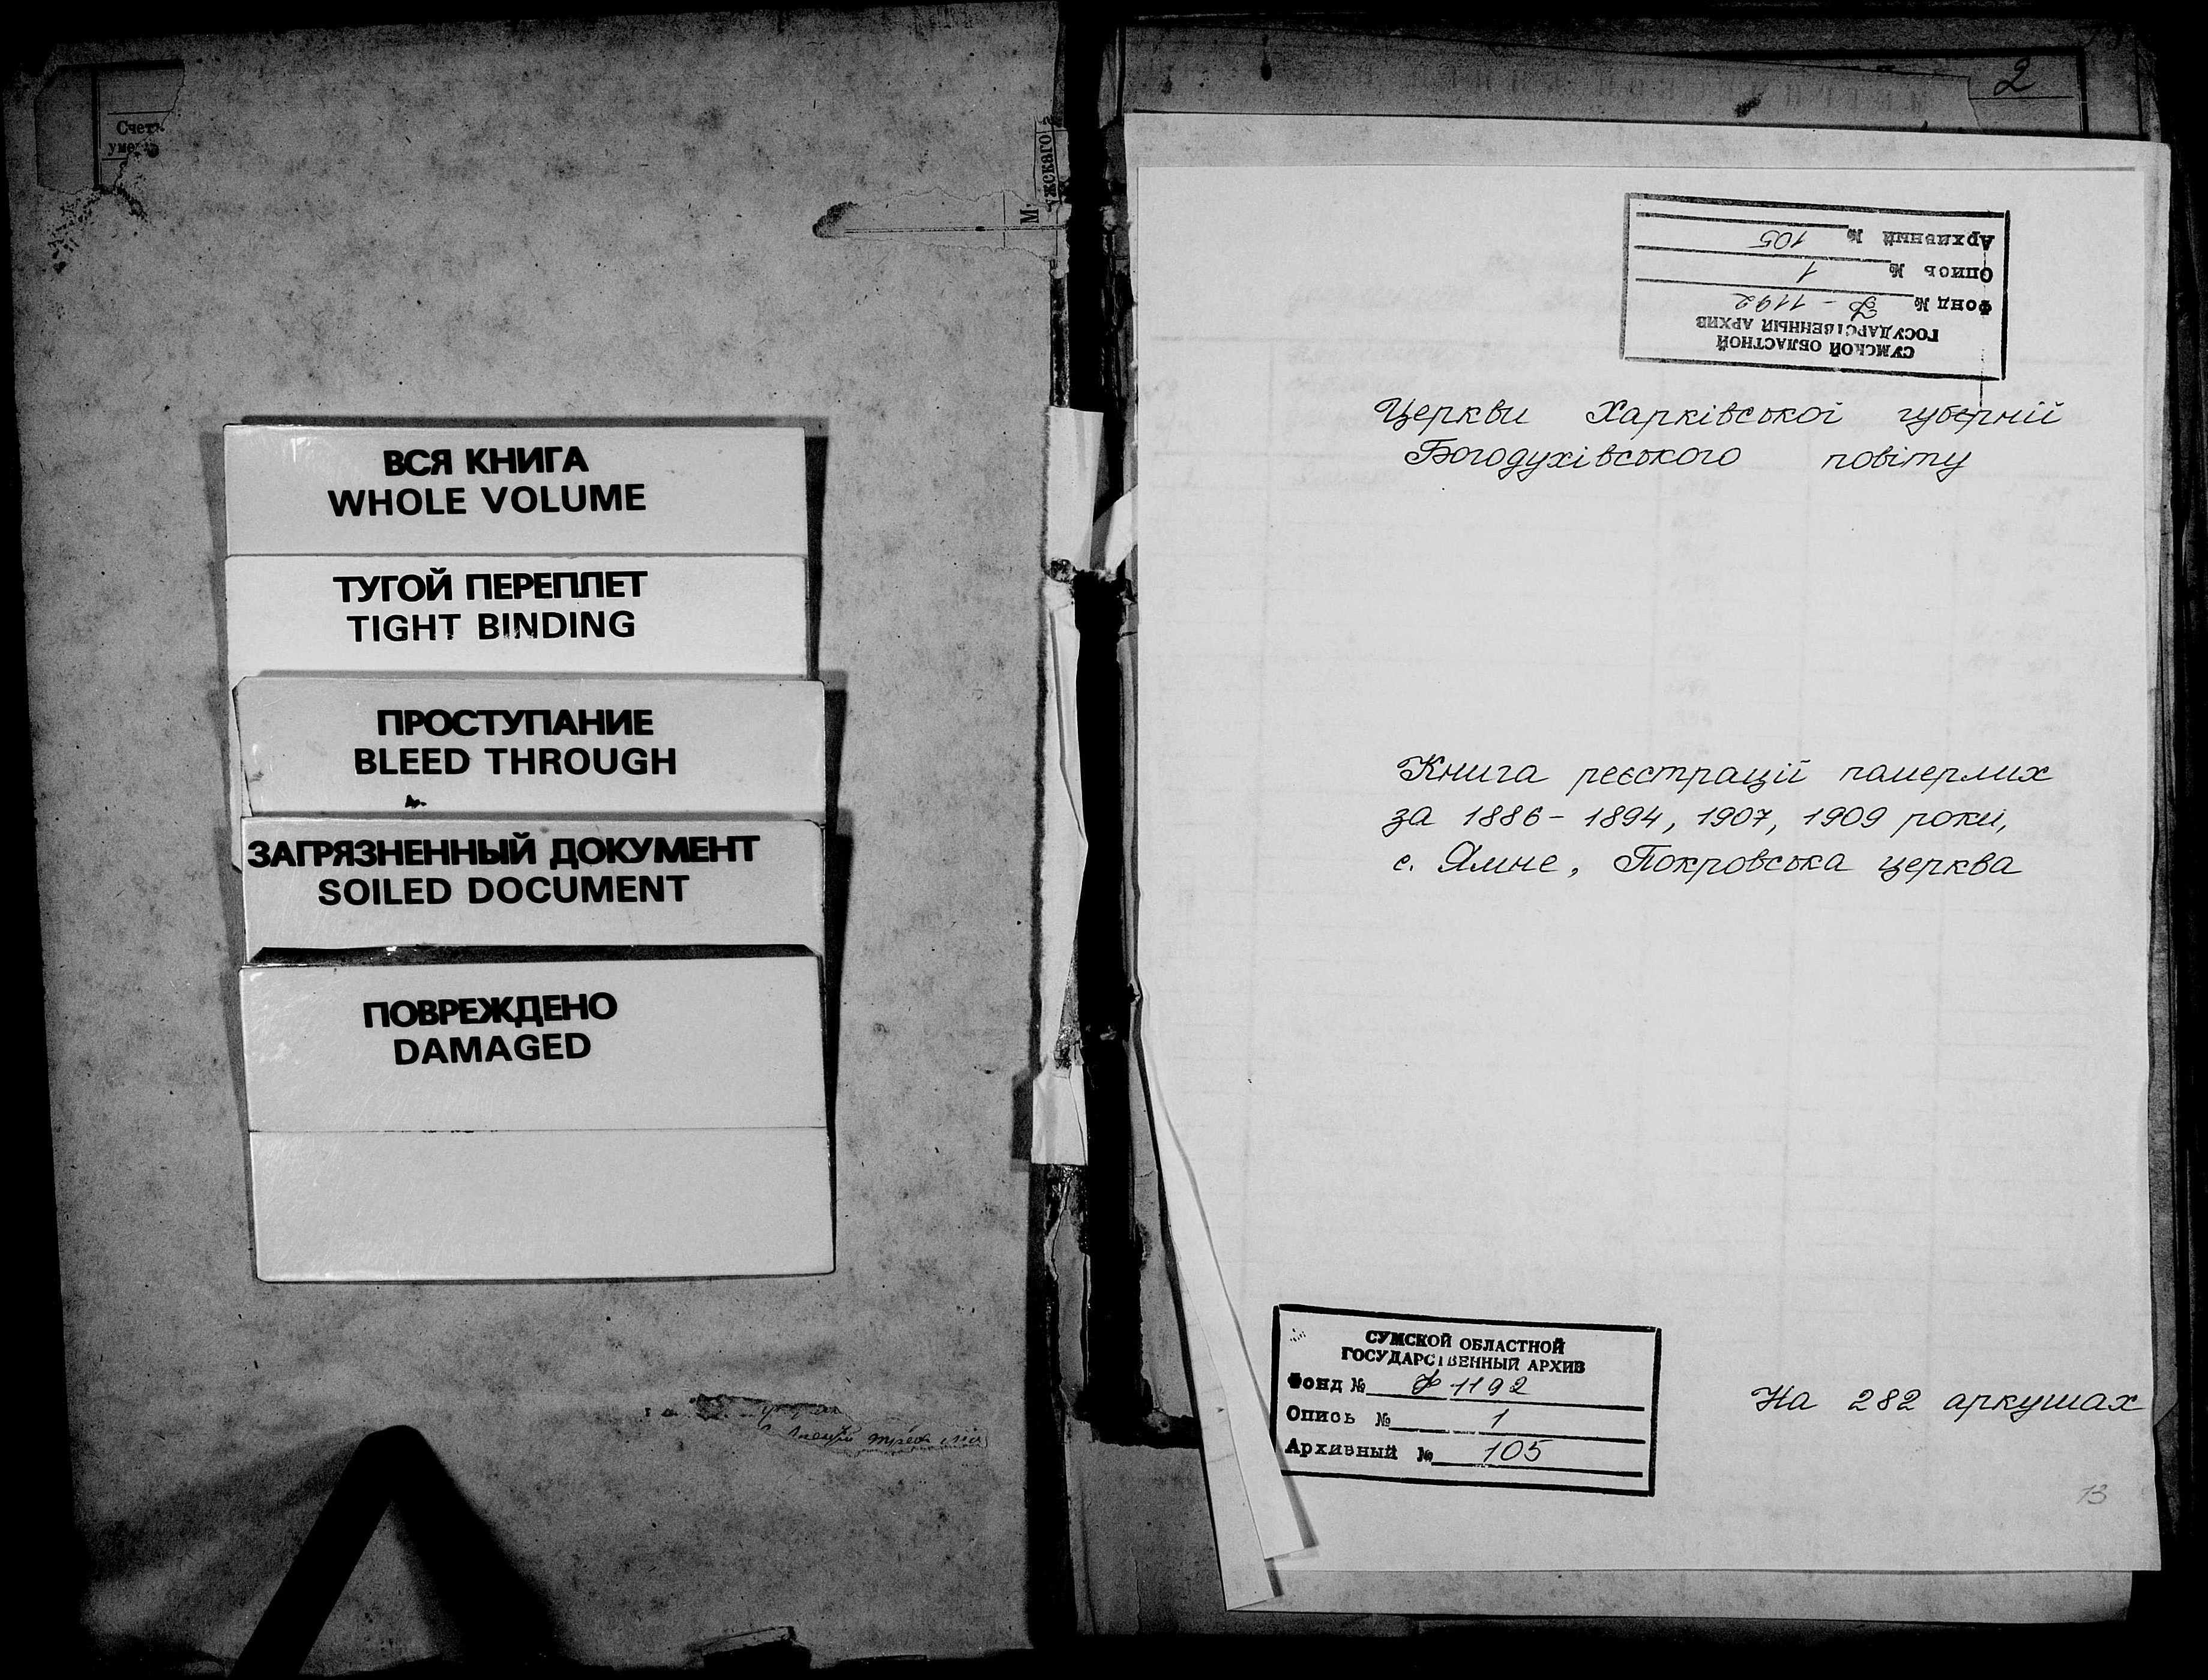 Счетъ
ВСЯ КНИГА
WHOLE VOLUME
ТУГОЙ ПЕРЕПЛЕТ
TIGHT BINDING
ПРОСТУПАНИЕ
BLEED THROUGH
ЗАГРЯЗНЕННЫЙ ДОКУМЕНТ
SOILED DOCUMENT
ПОВРЕЖДЕНО
DAMAGED
2
СУМСКОЙ ОБЛАСТНОЙ
ГОСУДАРСТВЕННЫЙ АРХИВ
Фонд № Ф-1192
Опись № 1
Архивный № 105
Церкви Харківської губернії
Богодухівського повіту
Книга реєстрації померлих
за 1886-1894, 1907, 1909 роки,
с. Ямне, Покровська церква
СУМСКОЙ ОБЛАСТНОЙ
ГОСУДАРСТВЕННЫЙ АРХИВ
Фонд № Ф 1192
Опись № 1
Архивный № 105
На 282 аркушах
13